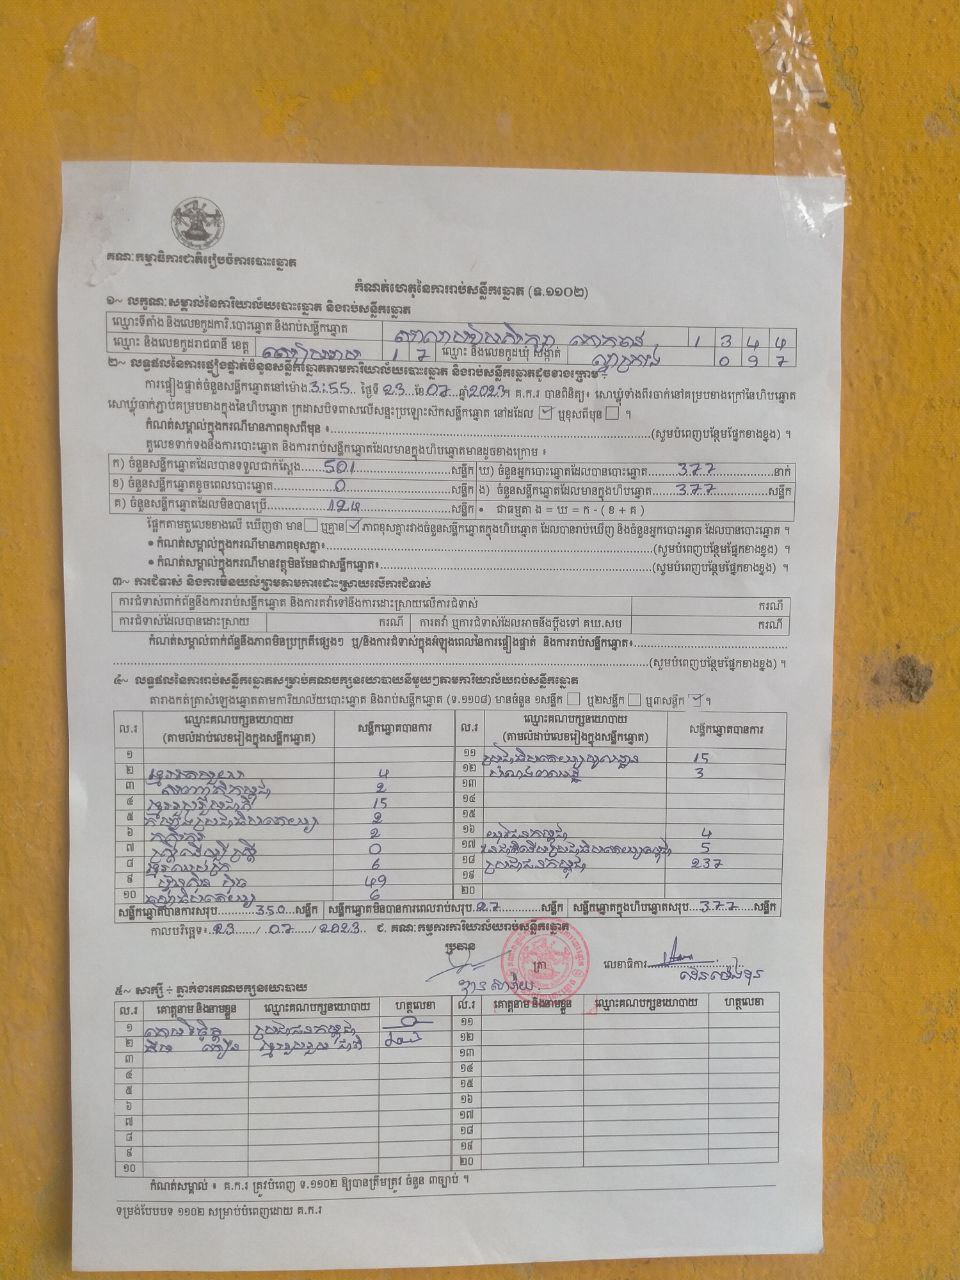 គណៈកម្មាធិការជាតិរៀបចំការបោះឆ្នោត
កំណត់ហេតុនៃការរាប់សន្លឹកឆ្នោត (ទ.១១០២)
១~ លក្ខណៈសម្គាល់នៃការិយាល័យបោះឆ្នោត និងរាប់សន្លឹកឆ្នោត
ឈ្មោះទីតាំង និងលេខកូដការិ.បោះឆ្នោត និងរាប់សន្លឹកឆ្នោត 1 3 4 4
ឈ្មោះ និងលេខកូដរាជធានី ខេត្ត សៀមរាប 1 7 ឈ្មោះ និងលេខកូដឃុំ សង្កាត់ 0 9 7
២~ លទ្ធផលនៃការផ្ទៀងផ្ទាត់ចំនួនសន្លឹកឆ្នោតតាមការិយាល័យបោះឆ្នោត និងរាប់សន្លឹកឆ្នោតដូចខាងក្រោម ៖
ការផ្ទៀងផ្ទាត់ចំនួនសន្លឹកឆ្នោតនៅម៉ោង 3:55 ថ្ងៃទី 23 ខែ 07 ឆ្នាំ 2023។ គ.ក.រ បានពិនិត្យ៖ សោឃ្លុំទាំងពីរចាក់នៅគម្របខាងក្រៅនៃហិបឆ្នោត
សោឃ្លុំចាក់ភ្ជាប់គម្របខាងក្នុងនៃហិបឆ្នោត ក្រដាសបិទពាសលើសន្ទះប្រឡោះស៊កសន្លឹកឆ្នោត នៅដដែល ☑ ឬខុសពីមុន ☐ ។
កំណត់សម្គាល់ក្នុងករណីមានភាពខុសពីមុន ៖ (សូមបំពេញបន្ថែមផ្នែកខាងខ្នង) ។
តួលេខទាក់ទងនឹងការបោះឆ្នោត និងការរាប់សន្លឹកឆ្នោតដែលមានក្នុងហិបឆ្នោតមានដូចខាងក្រោម ៖
ក) ចំនួនសន្លឹកឆ្នោតដែលបានទទួលជាក់ស្តែង 501 សន្លឹក ឃ) ចំនួនអ្នកបោះឆ្នោតដែលបានបោះឆ្នោត 377 នាក់
ខ) ចំនួនសន្លឹកឆ្នោតខូចពេលបោះឆ្នោត 0 សន្លឹក ង) ចំនួនសន្លឹកឆ្នោតដែលមានក្នុងហិបឆ្នោត 377 សន្លឹក
គ) ចំនួនសន្លឹកឆ្នោតដែលមិនបានប្រើ 124 សន្លឹក • ជាធម្មតា ង = ឃ = ក - ( ខ + គ )
ផ្អែកតាមតួលេខខាងលើ ឃើញថា មាន ☐ ឬគ្មាន ☑ ភាពខុសគ្នារវាងចំនួនសន្លឹកឆ្នោតក្នុងហិបឆ្នោត ដែលបានរាប់ឃើញ និងចំនួនអ្នកបោះឆ្នោត ដែលបានបោះឆ្នោត ។
• កំណត់សម្គាល់ក្នុងករណីមានភាពខុសគ្នា៖ (សូមបំពេញបន្ថែមផ្នែកខាងខ្នង) ។
• កំណត់សម្គាល់ក្នុងករណីមានវត្ថុមិនមែនជាសន្លឹកឆ្នោត៖ (សូមបំពេញបន្ថែមផ្នែកខាងខ្នង) ។
៣~ ការជំទាស់ និងការមិនយល់ព្រមតាមការដោះស្រាយលើការជំទាស់
ការជំទាស់ពាក់ព័ន្ធនឹងការរាប់សន្លឹកឆ្នោត និងការតវ៉ាទៅនឹងការដោះស្រាយលើការជំទាស់ ករណី
ការជំទាស់ដែលបានដោះស្រាយ ករណី ការតវ៉ា ឬការជំទាស់ដែលអាចនឹងប្តឹងទៅ គឃ.សប ករណី
កំណត់សម្គាល់ពាក់ព័ន្ធនឹងភាពមិនប្រក្រតីផ្សេងៗ ឬ/និងការជំទាស់ក្នុងអំឡុងពេលនៃការផ្ទៀងផ្ទាត់ និងការរាប់សន្លឹកឆ្នោត៖
(សូមបំពេញបន្ថែមផ្នែកខាងខ្នង) ។
៤~ លទ្ធផលនៃការរាប់សន្លឹកឆ្នោតសម្រាប់គណបក្សនយោបាយនីមួយៗតាមការិយាល័យរាប់សន្លឹកឆ្នោត
តារាងកត់ត្រាសំឡេងឆ្នោតតាមការិយាល័យបោះឆ្នោត និងរាប់សន្លឹកឆ្នោត (ទ.១១០៨) មានចំនួន ១សន្លឹក ☐ ឬ២សន្លឹក ☐ ឬ៣សន្លឹក ☑ ។
ល.រ ឈ្មោះគណបក្សនយោបាយ (តាមលំដាប់លេខរៀងក្នុងសន្លឹកឆ្នោត) សន្លឹកឆ្នោតបានការ ល.រ ឈ្មោះគណបក្សនយោបាយ (តាមលំដាប់លេខរៀងក្នុងសន្លឹកឆ្នោត) សន្លឹកឆ្នោតបានការ
១ ១១ 15
២ 4 ១២ 3
៣ 2 ១៣
៤ 15 ១៤
៥ 2 ១៥
៦ 2 ១៦ 4
៧ 0 ១៧ 5
៨ 6 ១៨ ប្រជាជនកម្ពុជា 237
៩ ហ៊្វុនស៊ិនប៉ិច 49 ១៩
១០ 6 ២០
សន្លឹកឆ្នោតបានការសរុប 350 សន្លឹក សន្លឹកឆ្នោតមិនបានការពេលរាប់សរុប 27 សន្លឹក សន្លឹកឆ្នោតក្នុងហិបឆ្នោតសរុប 377 សន្លឹក
កាលបរិច្ឆេទ៖ 23 / 07 / 2023 ៩. គណៈកម្មការការិយាល័យរាប់សន្លឹកឆ្នោត
ប្រធាន ត្រា លេខាធិការ
៥~ សាក្សី ÷ ភ្នាក់ងារគណបក្សនយោបាយ
ល.រ គោត្តនាម និងនាមខ្លួន ឈ្មោះគណបក្សនយោបាយ ហត្ថលេខា ល.រ គោត្តនាម និងនាមខ្លួន ឈ្មោះគណបក្សនយោបាយ ហត្ថលេខា
១ ប្រជាជនកម្ពុជា ១១
២ ១២
៣ ១៣
៤ ១៤
៥ ១៥
៦ ១៦
៧ ១៧
៨ ១៨
៩ ១៩
១០ ២០
កំណត់សម្គាល់ ៖ គ.ក.រ ត្រូវបំពេញ ទ.១១០២ ឱ្យបានត្រឹមត្រូវ ចំនួន ៣ច្បាប់ ។
ទម្រង់បែបបទ ១១០២ សម្រាប់បំពេញដោយ គ.ក.រ